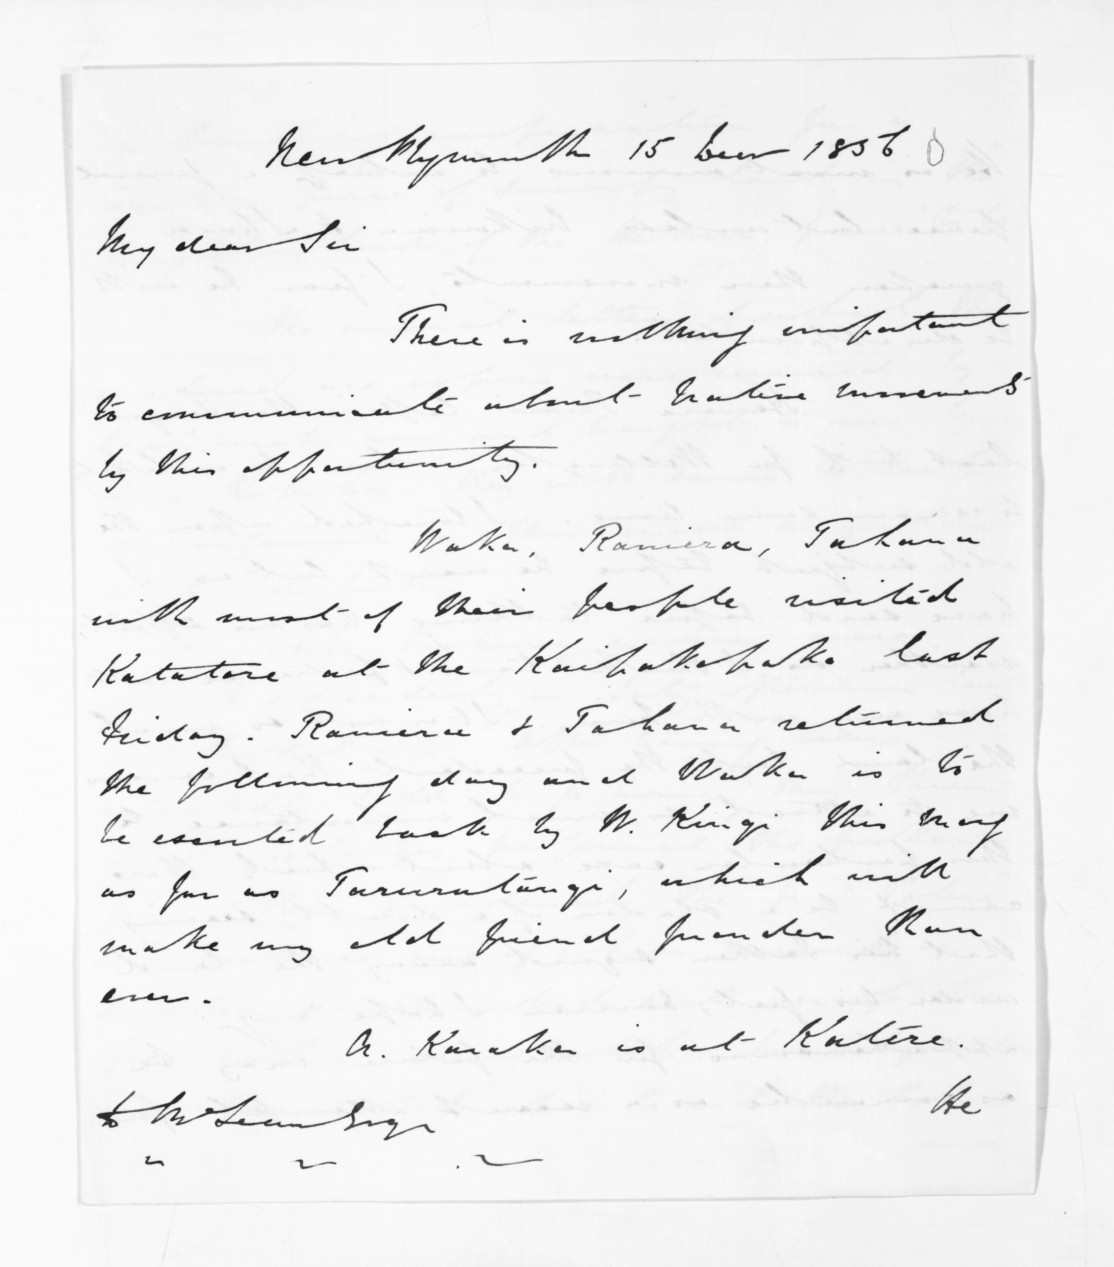 New Plymouth 15 Decr 1856
My dear Sir
There is nothing important
to communicate about Native movements
by this opportunity.
Waka, Raniera, Tahana
with most of their people visited
Katatore at the Kaipakopako last
Friday. Raniera & Tahana returned
the following day and Waka is to
be escorted back by W. Kingi this morg
as far as Tarurutangi, which will
make my old friend prouder than
ever.
A. Karaka is at Katere.
He
D McLean Esqr